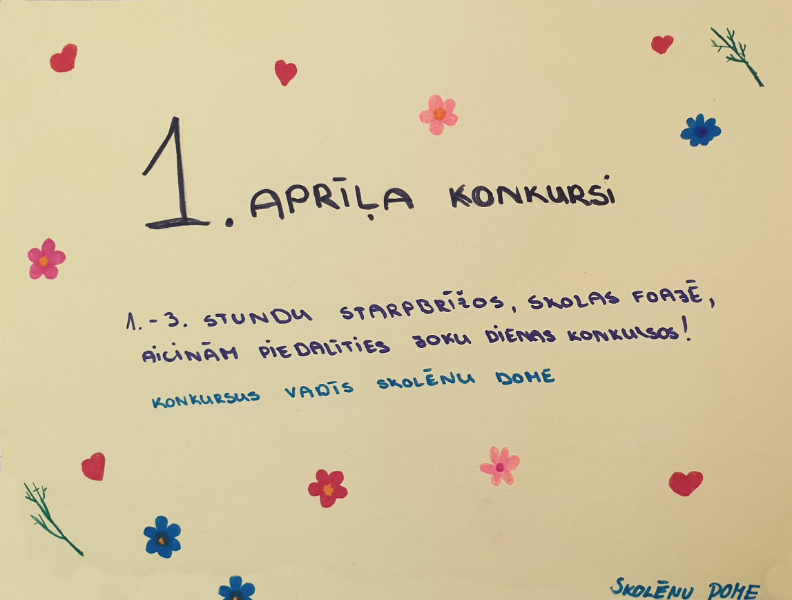 1. APRĪĻA KONKURSI
1.-3. STUNDU STARPBRĪŽOS, SKOLAS FOAJĒ,
AICINĀM PIEDALĪTIES JOKU DIENAS KONKURSOS!
KONKURSUS VADĪS SKOLĒNU DOME
SKOLĒNU DOME